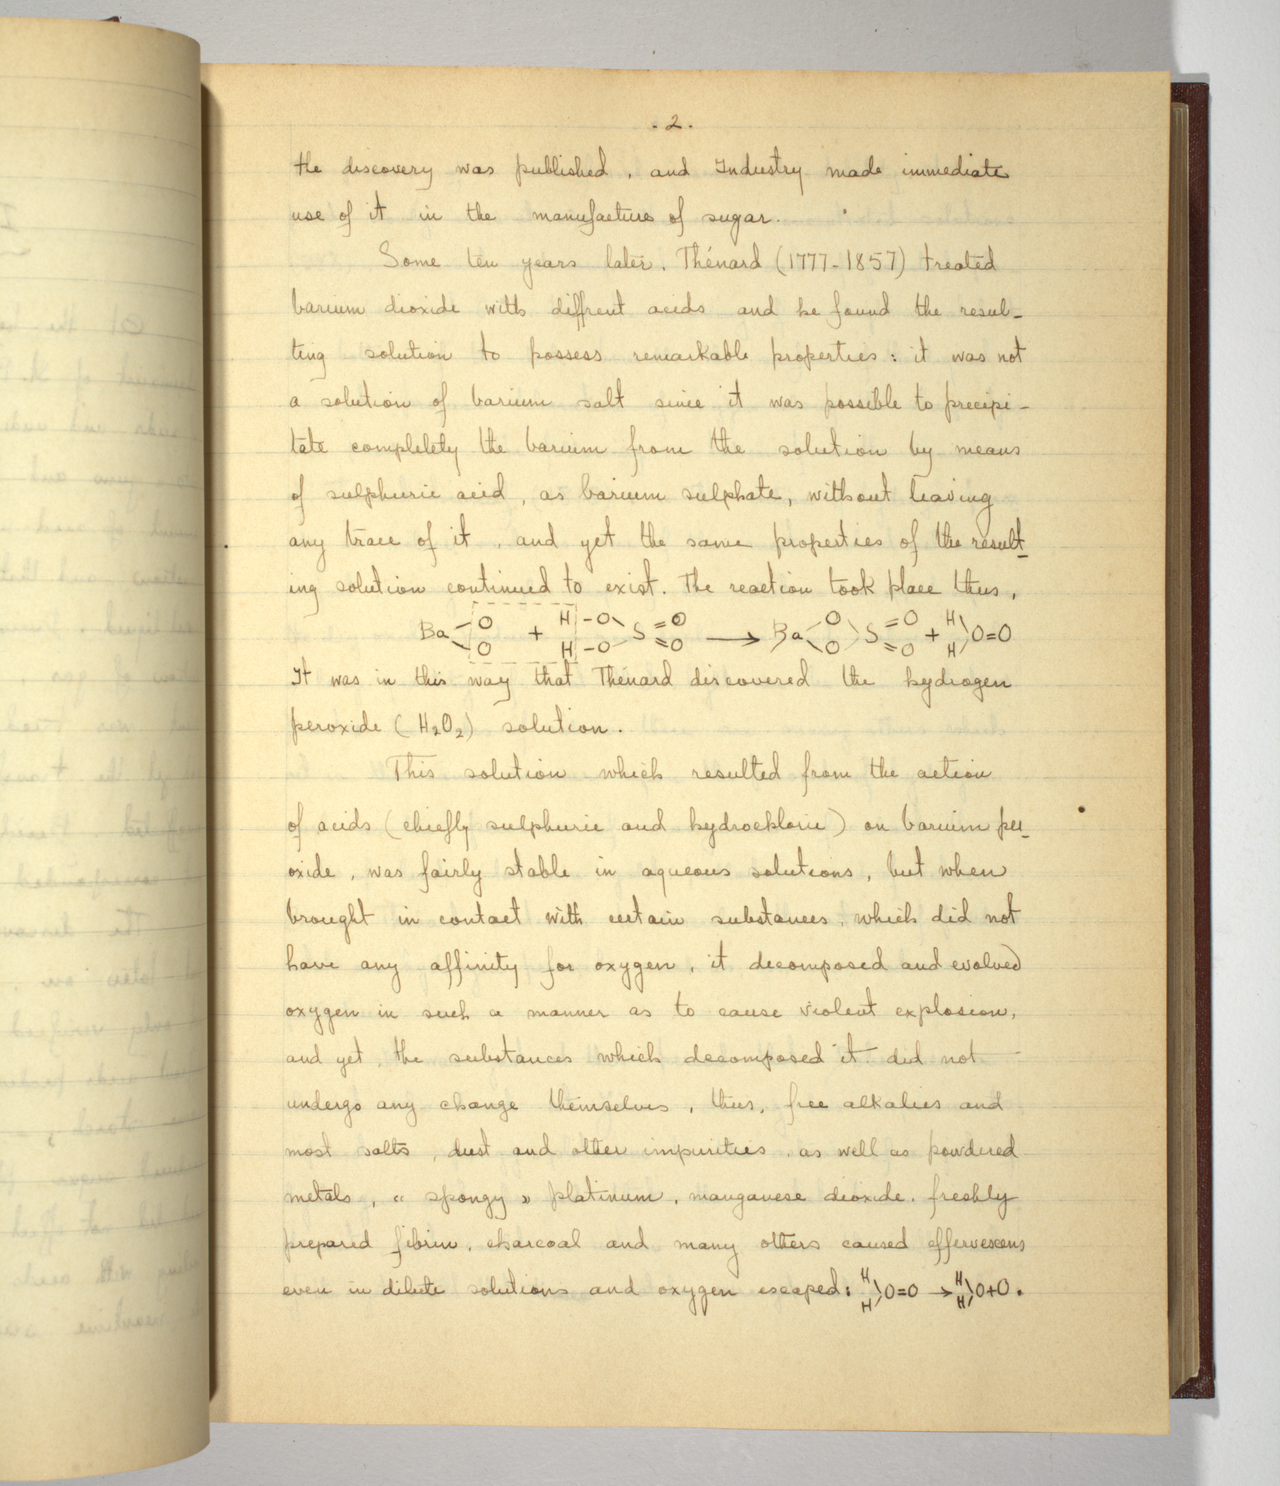 - 2 -
the discovery was published, and Industry made immediate
use of it in the manufacture of sugar.
Some ten years later, Thénard (1777-1857) treated
barium dioxide with diffrent acids and he found the resul-
ting solution to possess remarkable properties: it was not
a solution of barium salt since it was possible to precipi-
tate completely the barium from the solution by means
of sulphuric acid, as barium sulphate, without leaving
any trace of it, and yet the same properties of the result-
ing solution continued to exist. The reaction took place thus,
Ba O O + H H -O -O S =O =O → Ba O O S =O =O + H H O=O
It was in this way that Thénard discovered the hydrogen
peroxide (H₂O₂) solution.
This solution which resulted from the action
of acids (chiefly sulphuric and hydrochloric) on barium per-
oxide, was fairly stable in aqueous solutions, but when
brought in contact with certain substances, which did not
have any affinity for oxygen, it decomposed and evolved
oxygen in such a manner as to cause violent explosion,
and yet, the substances which decomposed it did not
undergo any change themselves, thus, free alkalies and
most salts, dust and other impurities, as well as powdered
metals, « spongy » platinum, manganese dioxide, freshly
prepared fibrin, charcoal and many others caused effervescens
even in dilute solutions and oxygen escaped: H H O=O → H H O+O.